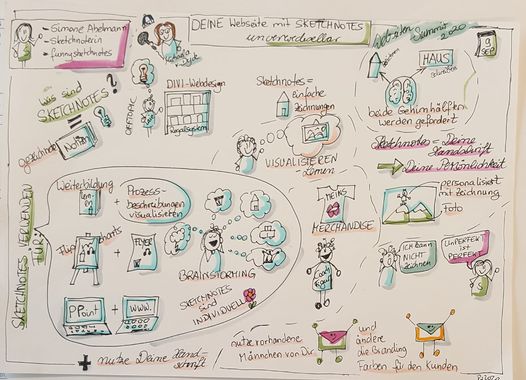 - Simone Abelmann
- Sketchnoterin
- funnysketchnotes
DEINE Webseite mit SKETCHNOTES
unverwechselbar
Summit
2020
9
SEP
was sind
SKETCHNOTES?
=
gezeichnete
Notizen
DIVI-Webdesign
Regalsystem
Sketchnotes =
einfache
Zeichnungen
VISUALISIEREN
lernen
HAUS
beide Gehirnhälften
werden gefördert
Sketchnotes = Deine
Handschrift
Deine Persönlichkeit
personalisiert
mit Zeichnung
Foto
SKETCHNOTES VERWENDEN
FÜR:
Weiterbildung
+
Prozess-
beschreibungen
visualisieren
Flipcharts
+
FLYER
PPoint
+
WWW.
BRAINSTORMING
SKETCHNOTES
sind
INDIVIDUELL
MERCHANDISE
ICH kann
NICHT
zeichnen
UNPERFEKT
ist
PERFEKT
+ nutze Deine Hand-
schrift
nutze vorhandene
Männchen von Dir
und
ändere
die Branding
Farben für den Kunden